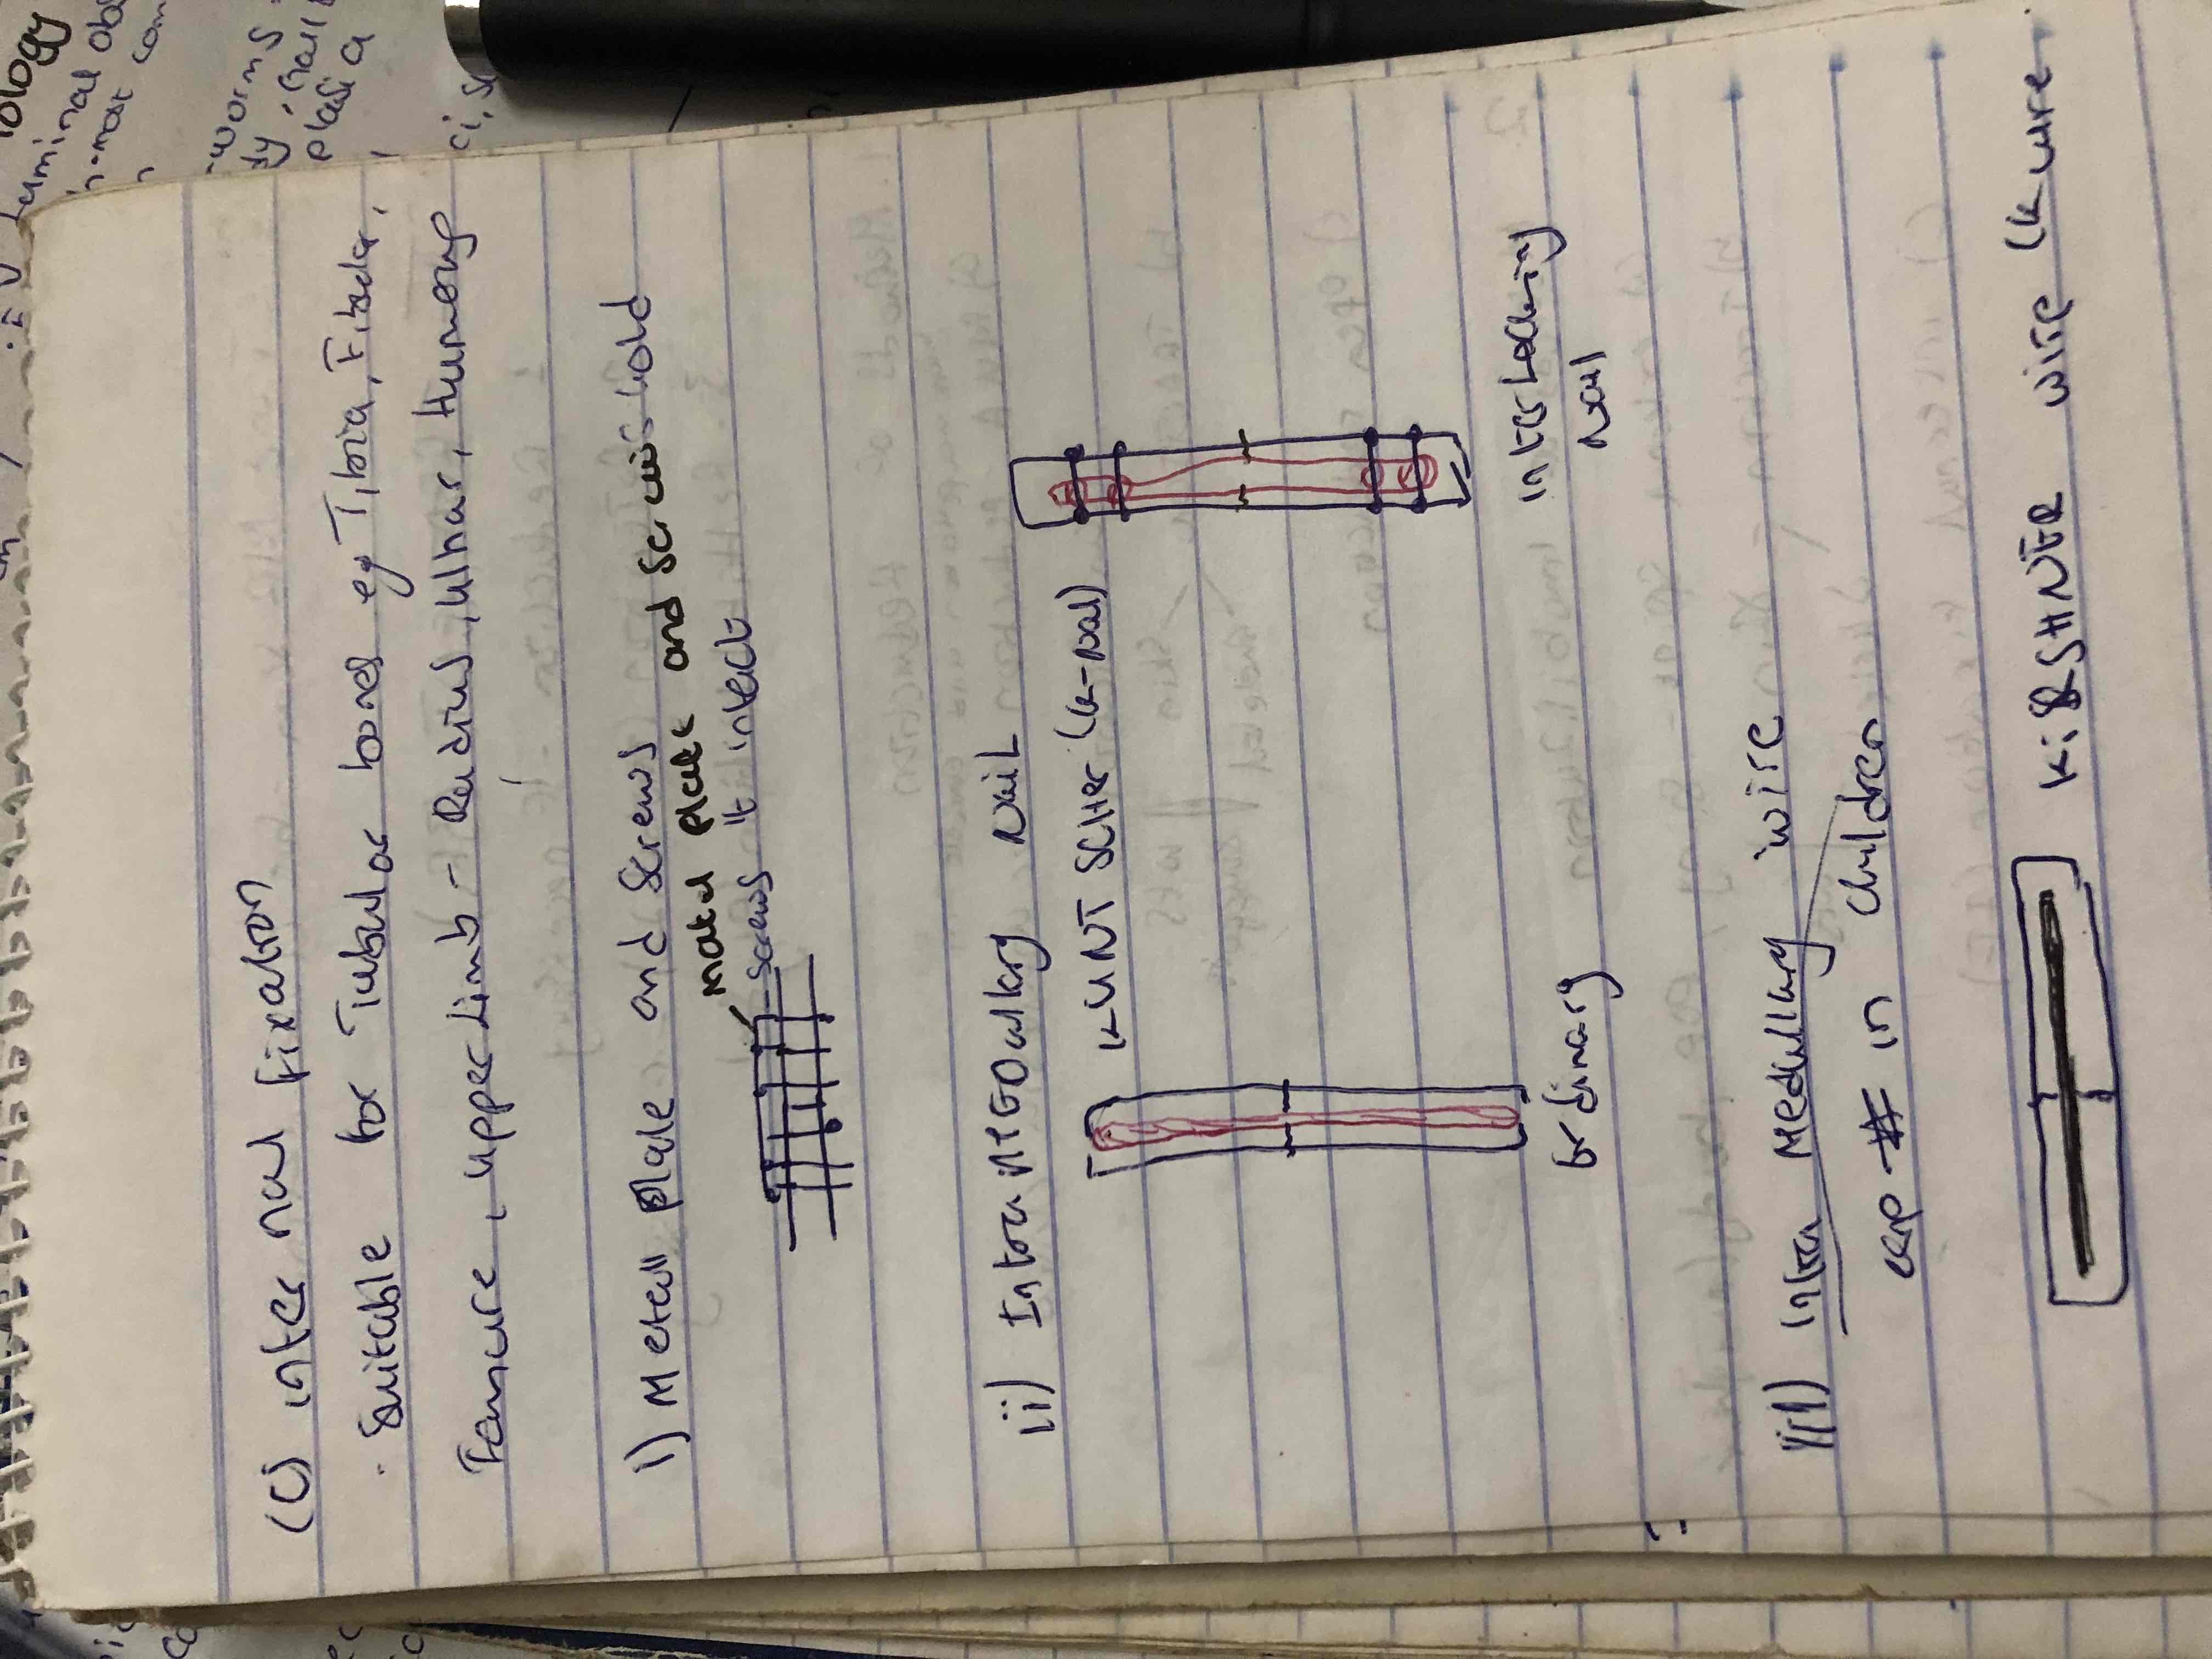 (C) internal fixation
. Suitable for Tubular bones eg Tibia, Fibular,
Femure, upper limb - Radius, ulnar, Humerus
i) Metal plate and screws
metal plate and screws hold
screws it intact
ii) Intramedullary nail
KUNTSCHER (K-nail)
ordinary
interlocking
nail
iii) Intra Medullary wire
esp # in children
KiRSHNER wire (k wire